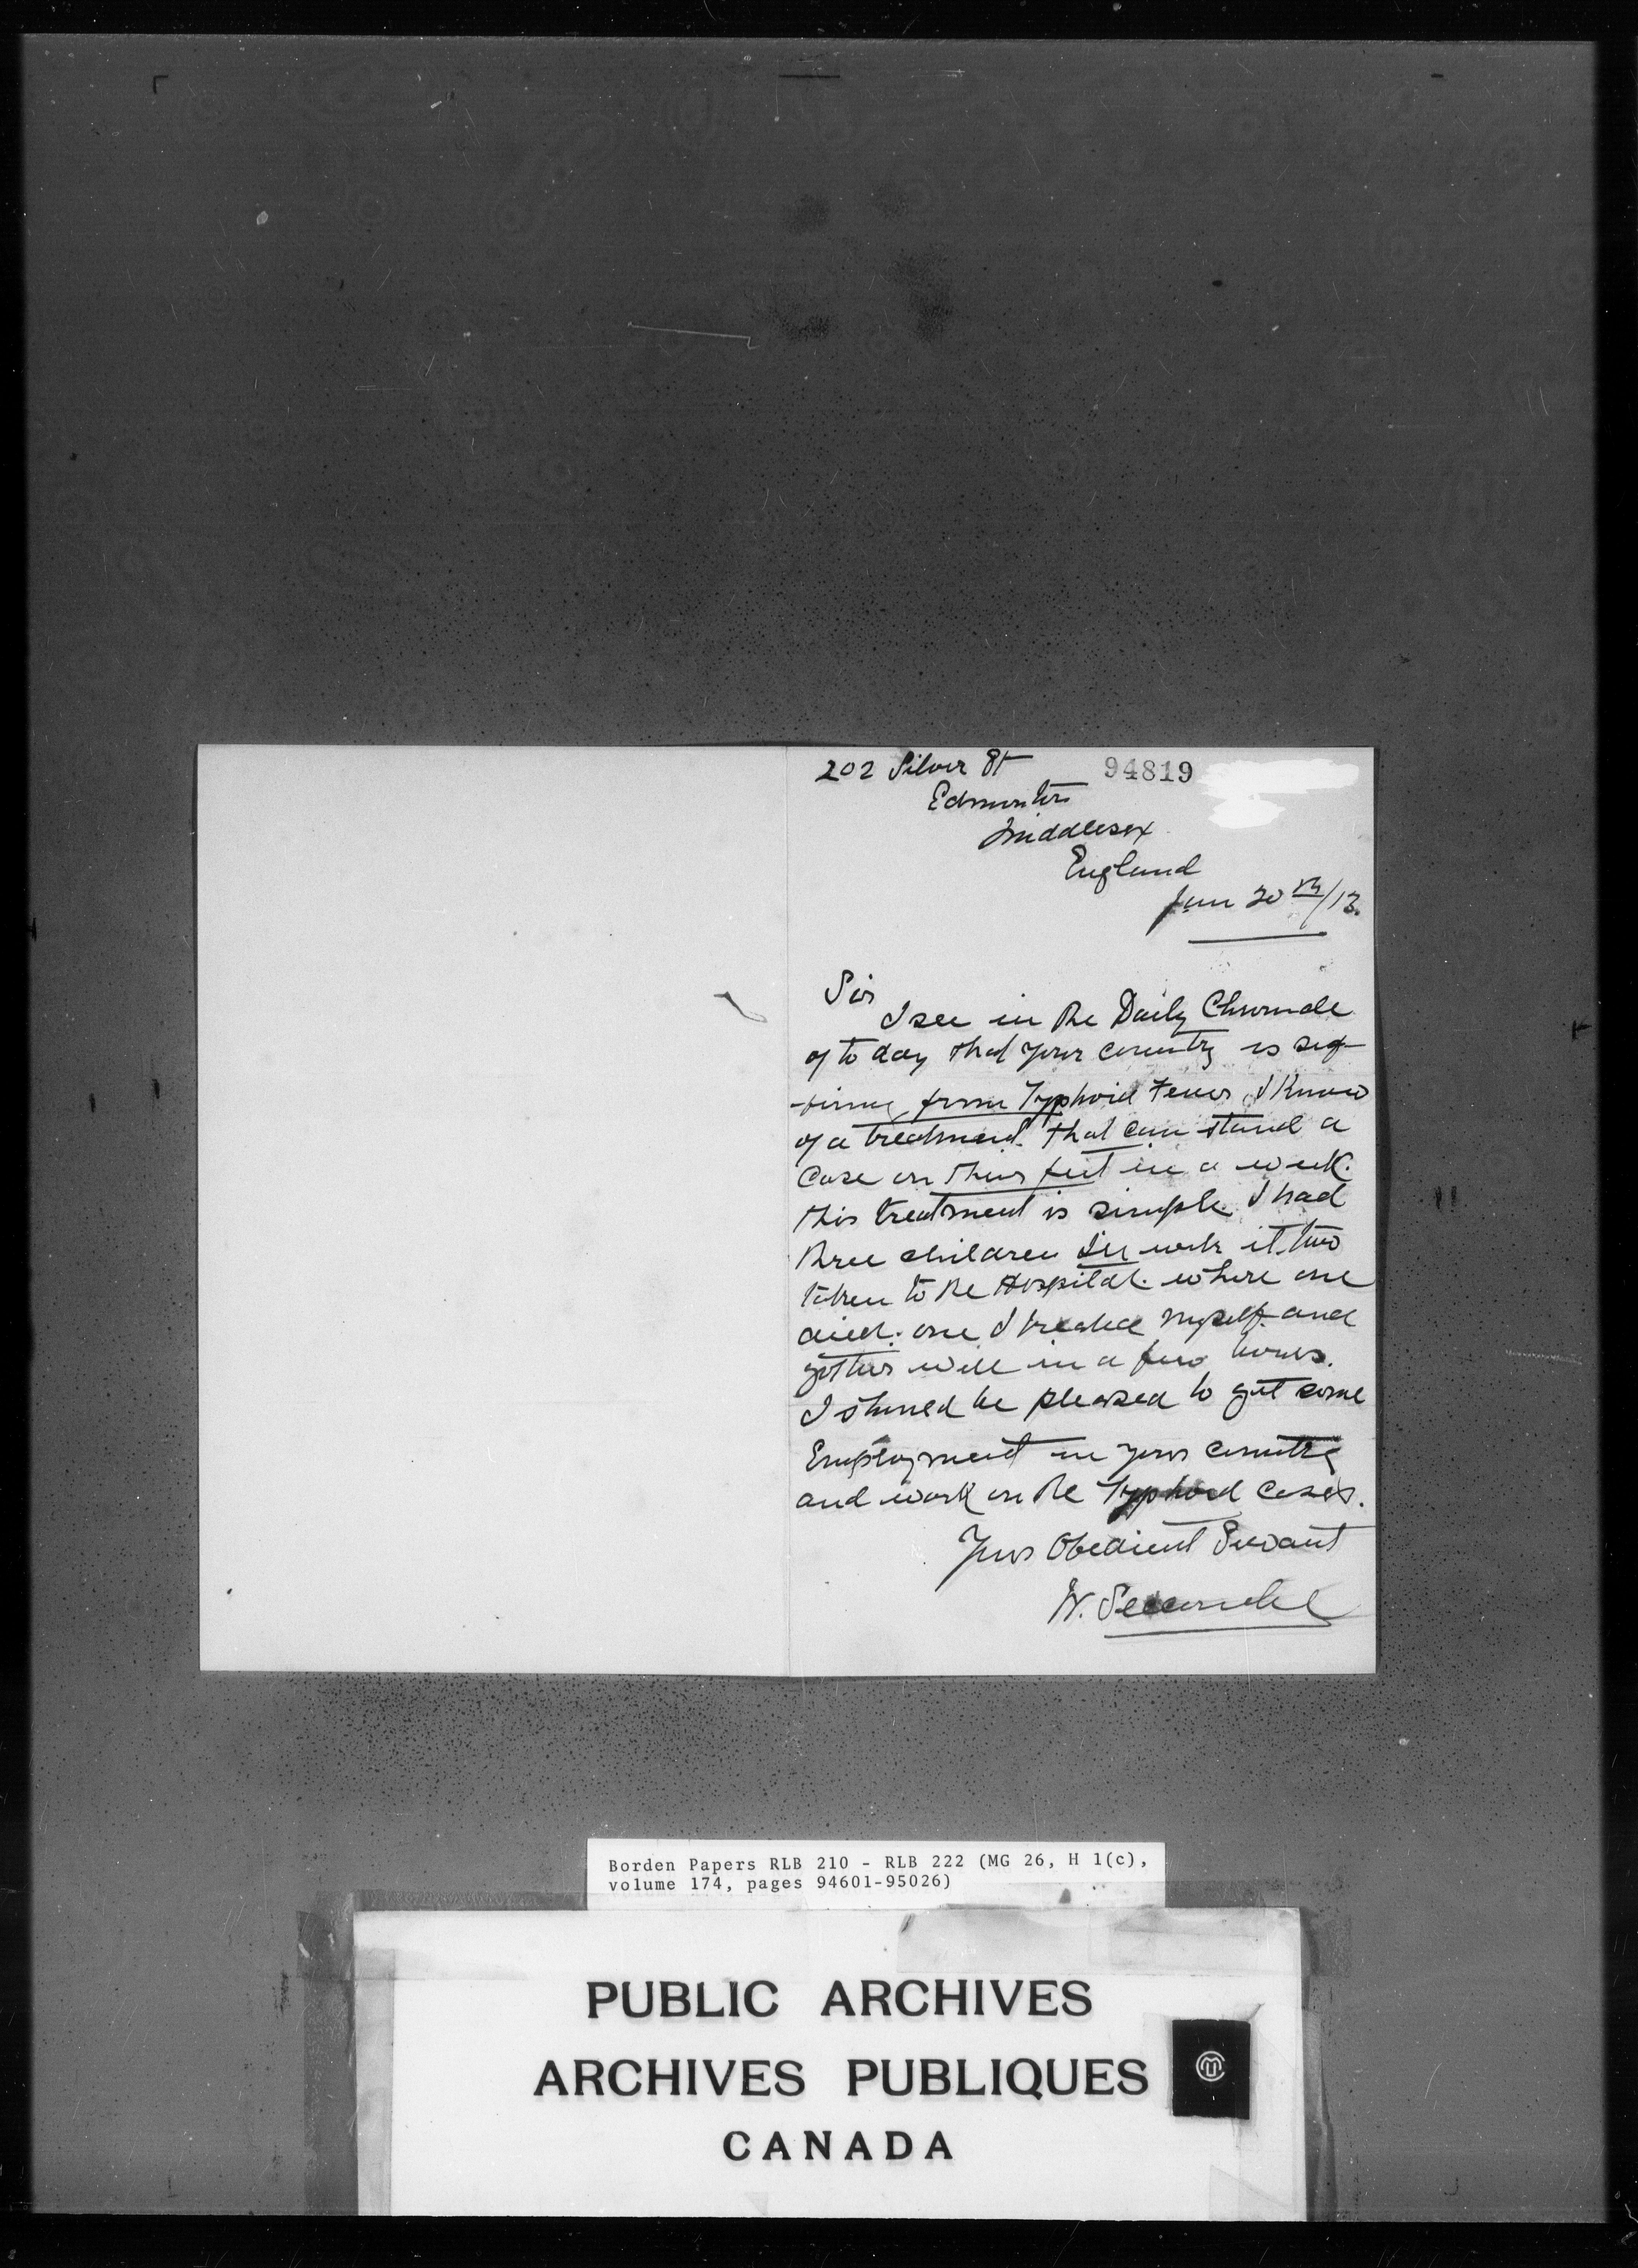 202 Silver St
94819
Edmonton
Middlesex
England
Jan 20th/13.
Sir
I see in the Daily Chronicle
of to day that your country is suf-
-fering from Typhoid Fever, I Know
of a treatment that can stand a
Case on their feet in a week.
this treatment is simple. I had
three children ill with it. two
taken to the Hospital. where one
died. one I treated myself. and
got her well in a few hours.
I should be pleased to get some
Employment in your country
and work on the Typhoid Cases.
Your Obedient Servant
W.
Borden Papers RLB 210 - RLB 222 (MG 26, H 1(c),
volume 174, pages 94601-95026)
PUBLIC ARCHIVES
ARCHIVES PUBLIQUES
CANADA